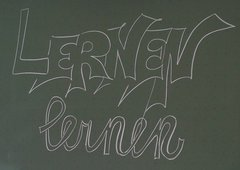 LERNEN
lernen